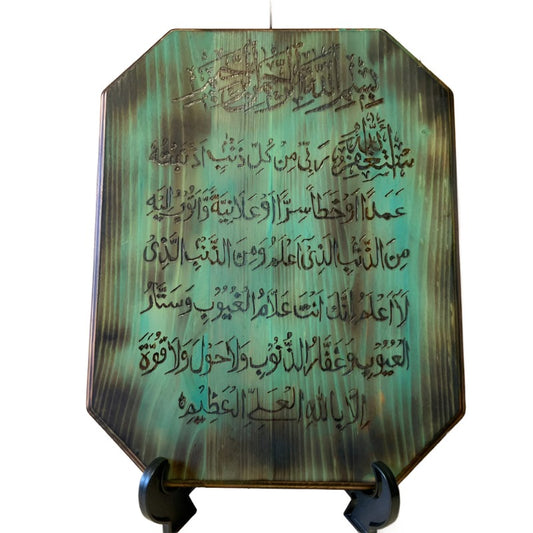 بِسْمِ اللهِ الرَّحْمٰنِ الرَّحِيْمِ
اَسْتَغْفِرُ اللهَ رَبِّىْ مِنْ كُلِّ ذَنْبٍ اَذْنَبْتُهُ
عَمَدًا اَوْ خَطَأً سِرًّا اَوْ عَلَانِيَةً وَّاَتُوْبُ اِلَيْهِ
مِنَ الذَّنْبِ الَّذِىْ اَعْلَمُ وَمِنَ الذَّنْبِ الَّذِىْ
لَا اَعْلَمُ اِنَّكَ اَنْتَ عَلَّامُ الْغُيُوْبِ وَسَتَّارُ
الْعُيُوْبِ وَغَفَّارُ الذُّنُوْبِ وَلَا حَوْلَ وَلَا قُوَّةَ
اِلَّا بِاللهِ الْعَلِىِّ الْعَظِيْمِ